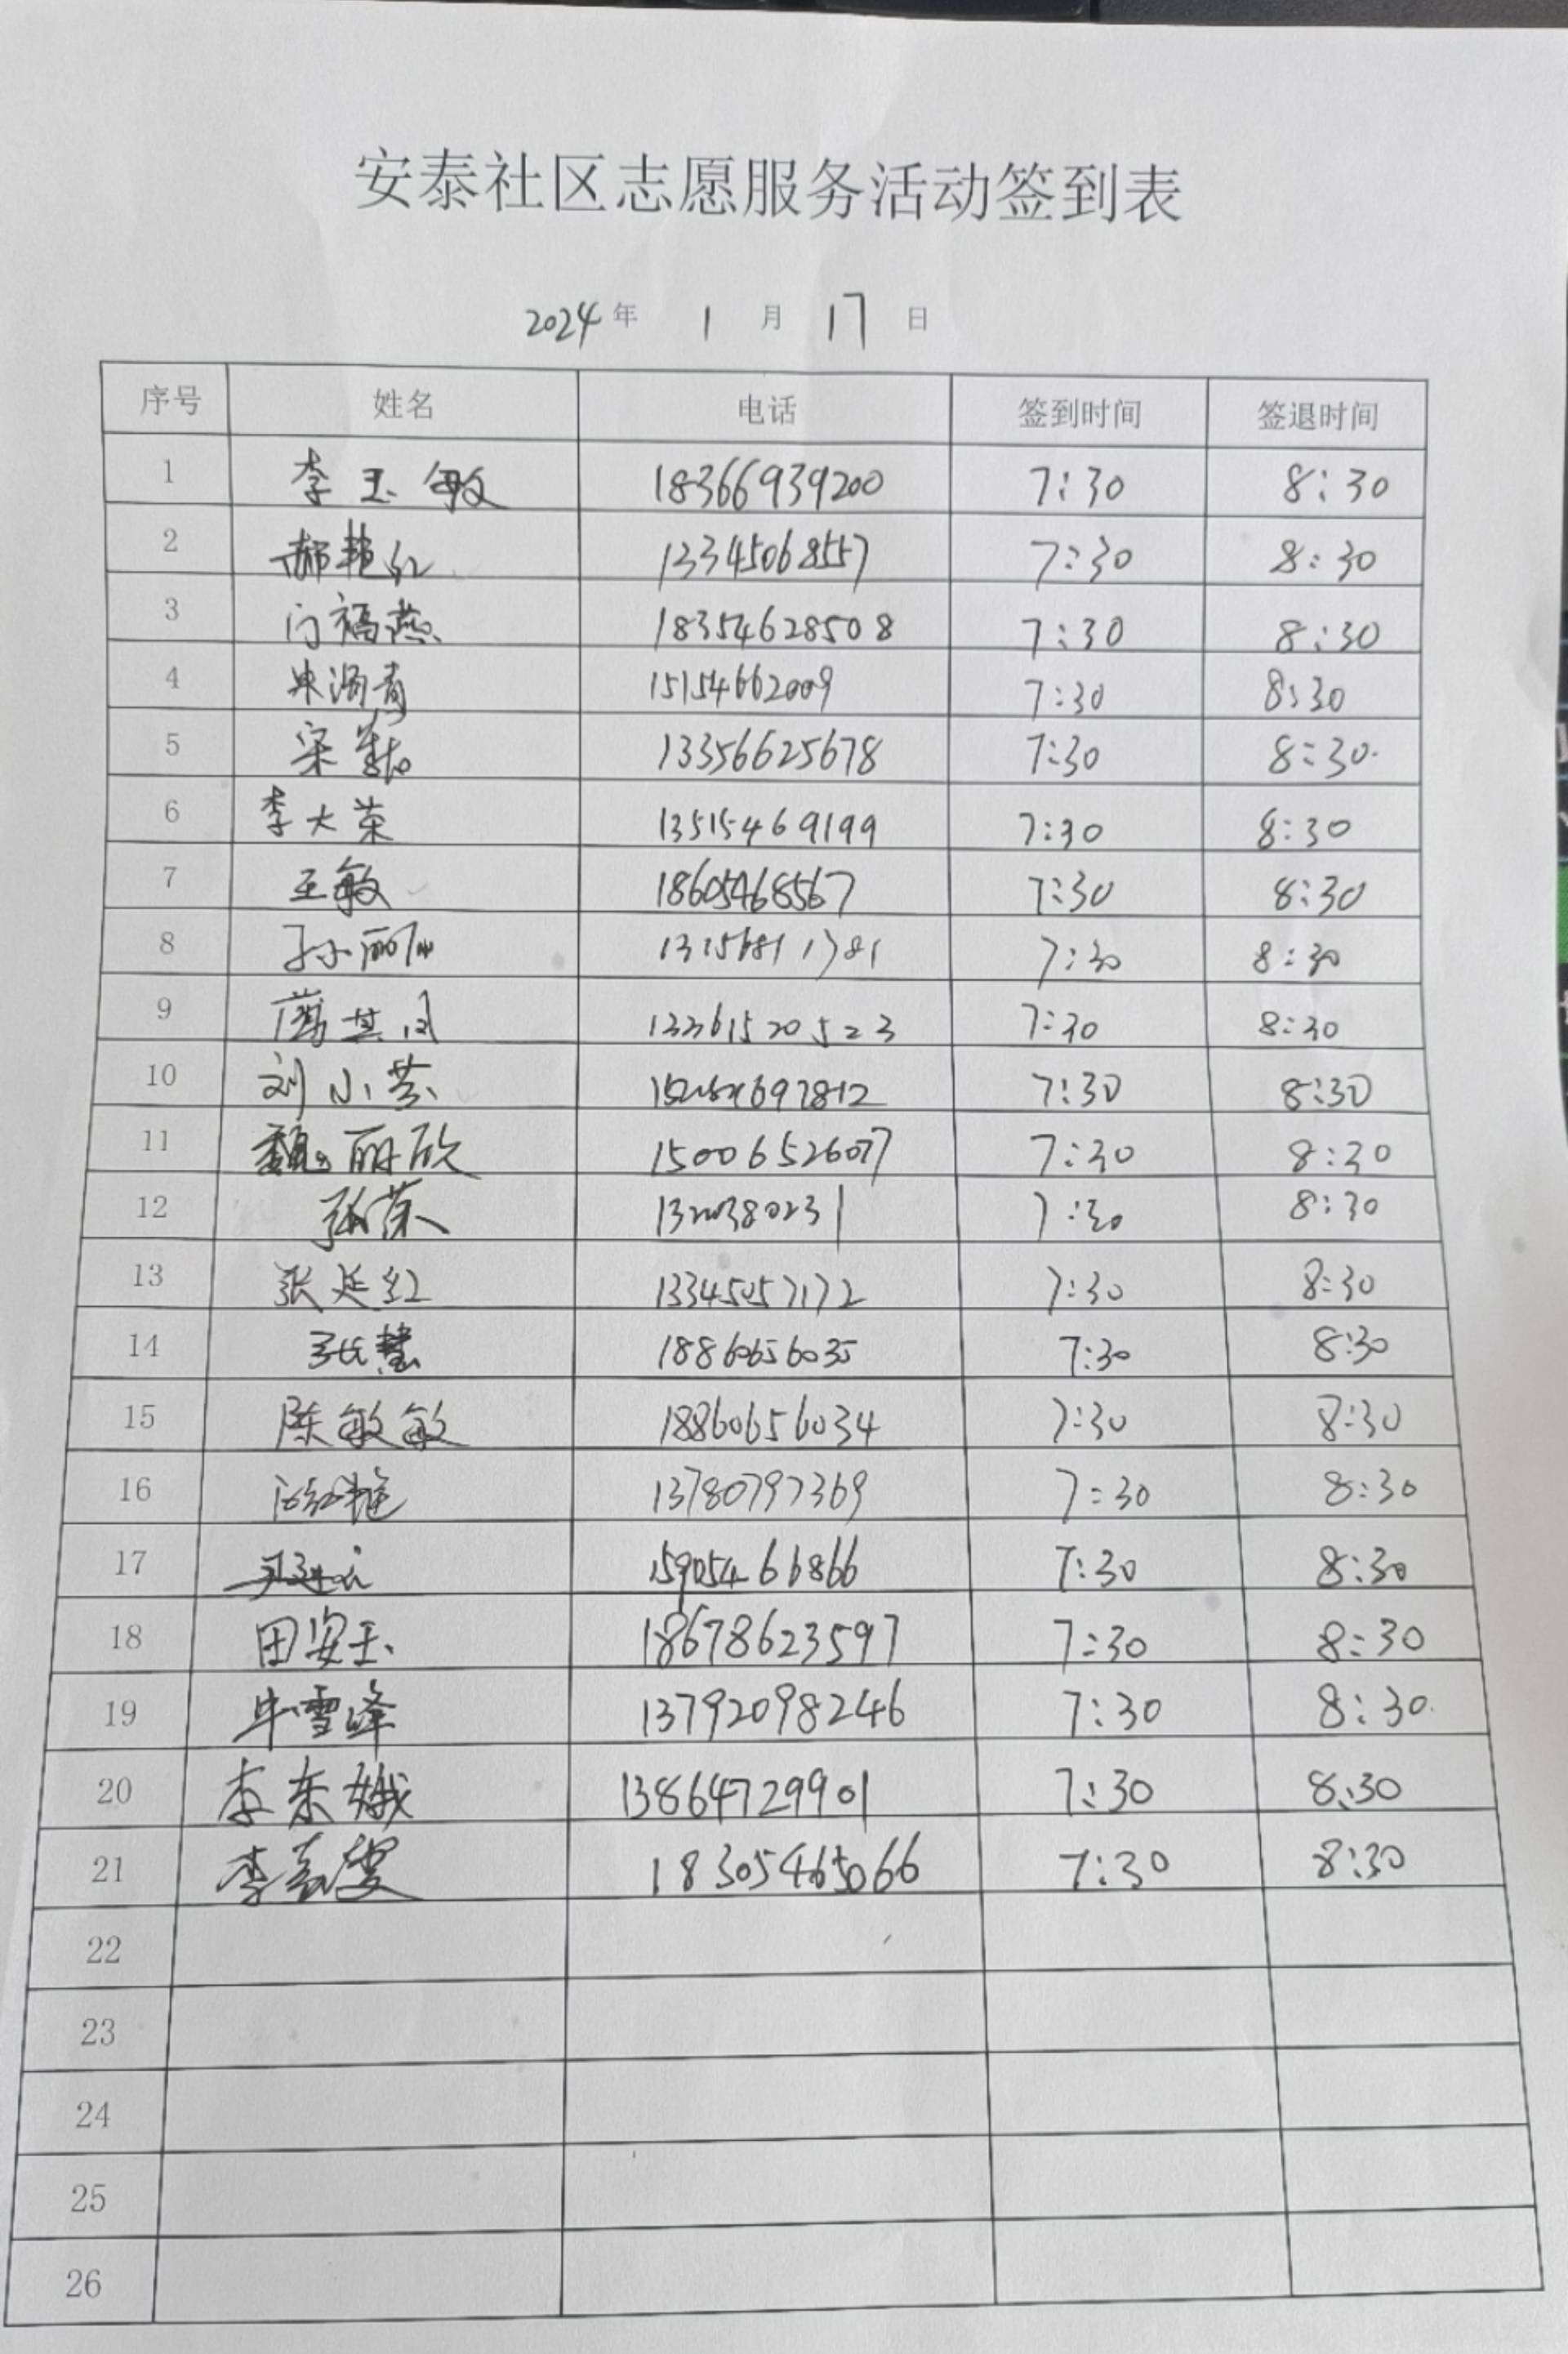 安泰社区志愿服务活动签到表
2024 年 1 月 17 日
序号 姓名 电话 签到时间 签退时间
1 李玉敏 18366939200 7:30 8:30
2 郝艳红 13345068557 7:30 8:30
3 门福燕 18354628508 7:30 8:30
4 15154662009 7:30 8:30
5 宋 13356625678 7:30 8:30
6 李大荣 13515469199 7:30 8:30
7 王敏 18605468567 7:30 8:30
8 孙丽 7:30 8:30
9 7:30 8:30
10 刘小芬 7:30 8:30
11 魏丽欣 15006526077 7:30 8:30
12 张荣 7:30 8:30
13 张廷红 13345057172 7:30 8:30
14 张慧 18860656035 7:30 8:30
15 陈敏敏 18860656034 7:30 8:30
16 13780797369 7:30 8:30
17 15905466866 7:30 8:30
18 田安玉 18678623597 7:30 8:30
19 牛雪峰 13792098246 7:30 8:30
20 李东娥 13864729901 7:30 8:30
21 李 18305465066 7:30 8:30
22
23
24
25
26